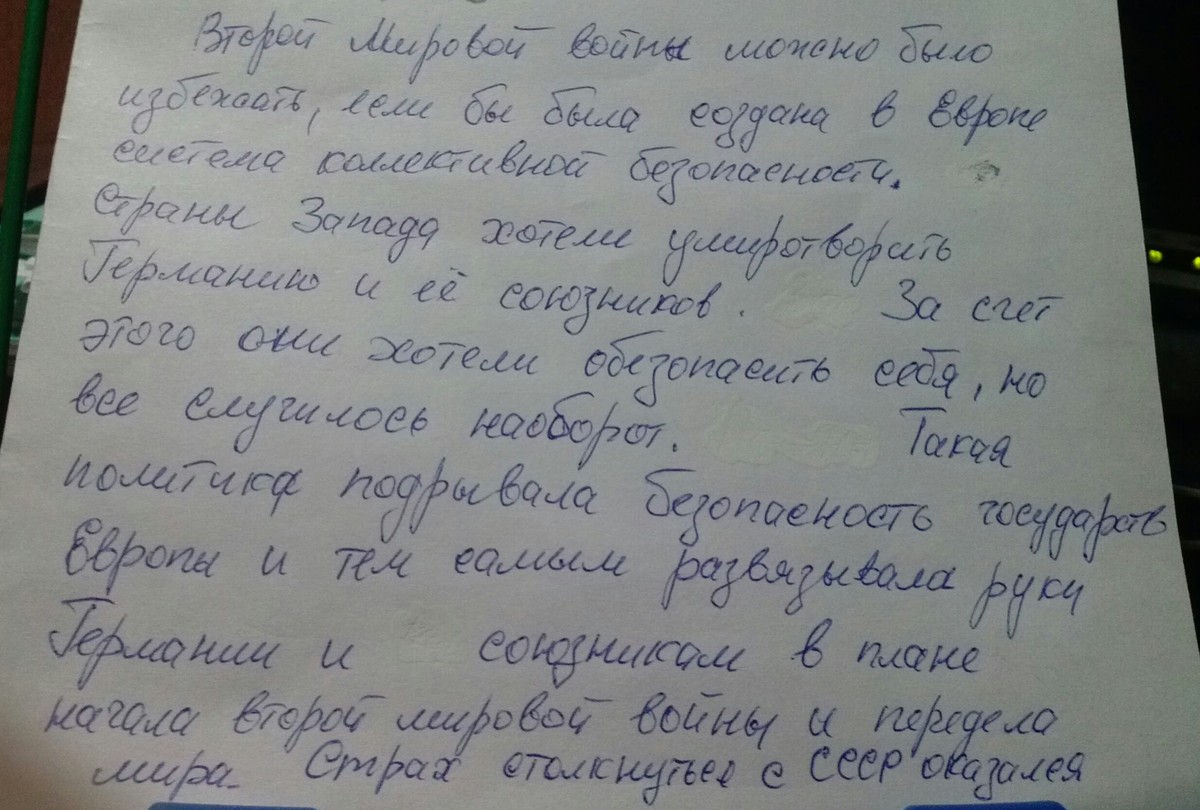 Второй Мировой войны можно было
избежать, если бы была создана в Европе
система коллективной безопасности.
Страны Запада хотели умиротворить
Германию и её союзников. За счет
этого они хотели обезопасить себя, но
все случилось наоборот. Такая
политика подрывала безопасность государств
Европы и тем самым развязывала руки
Германии и союзникам в плане
начала второй мировой войны и передела
мира. Страх столкнуться с СССР оказался